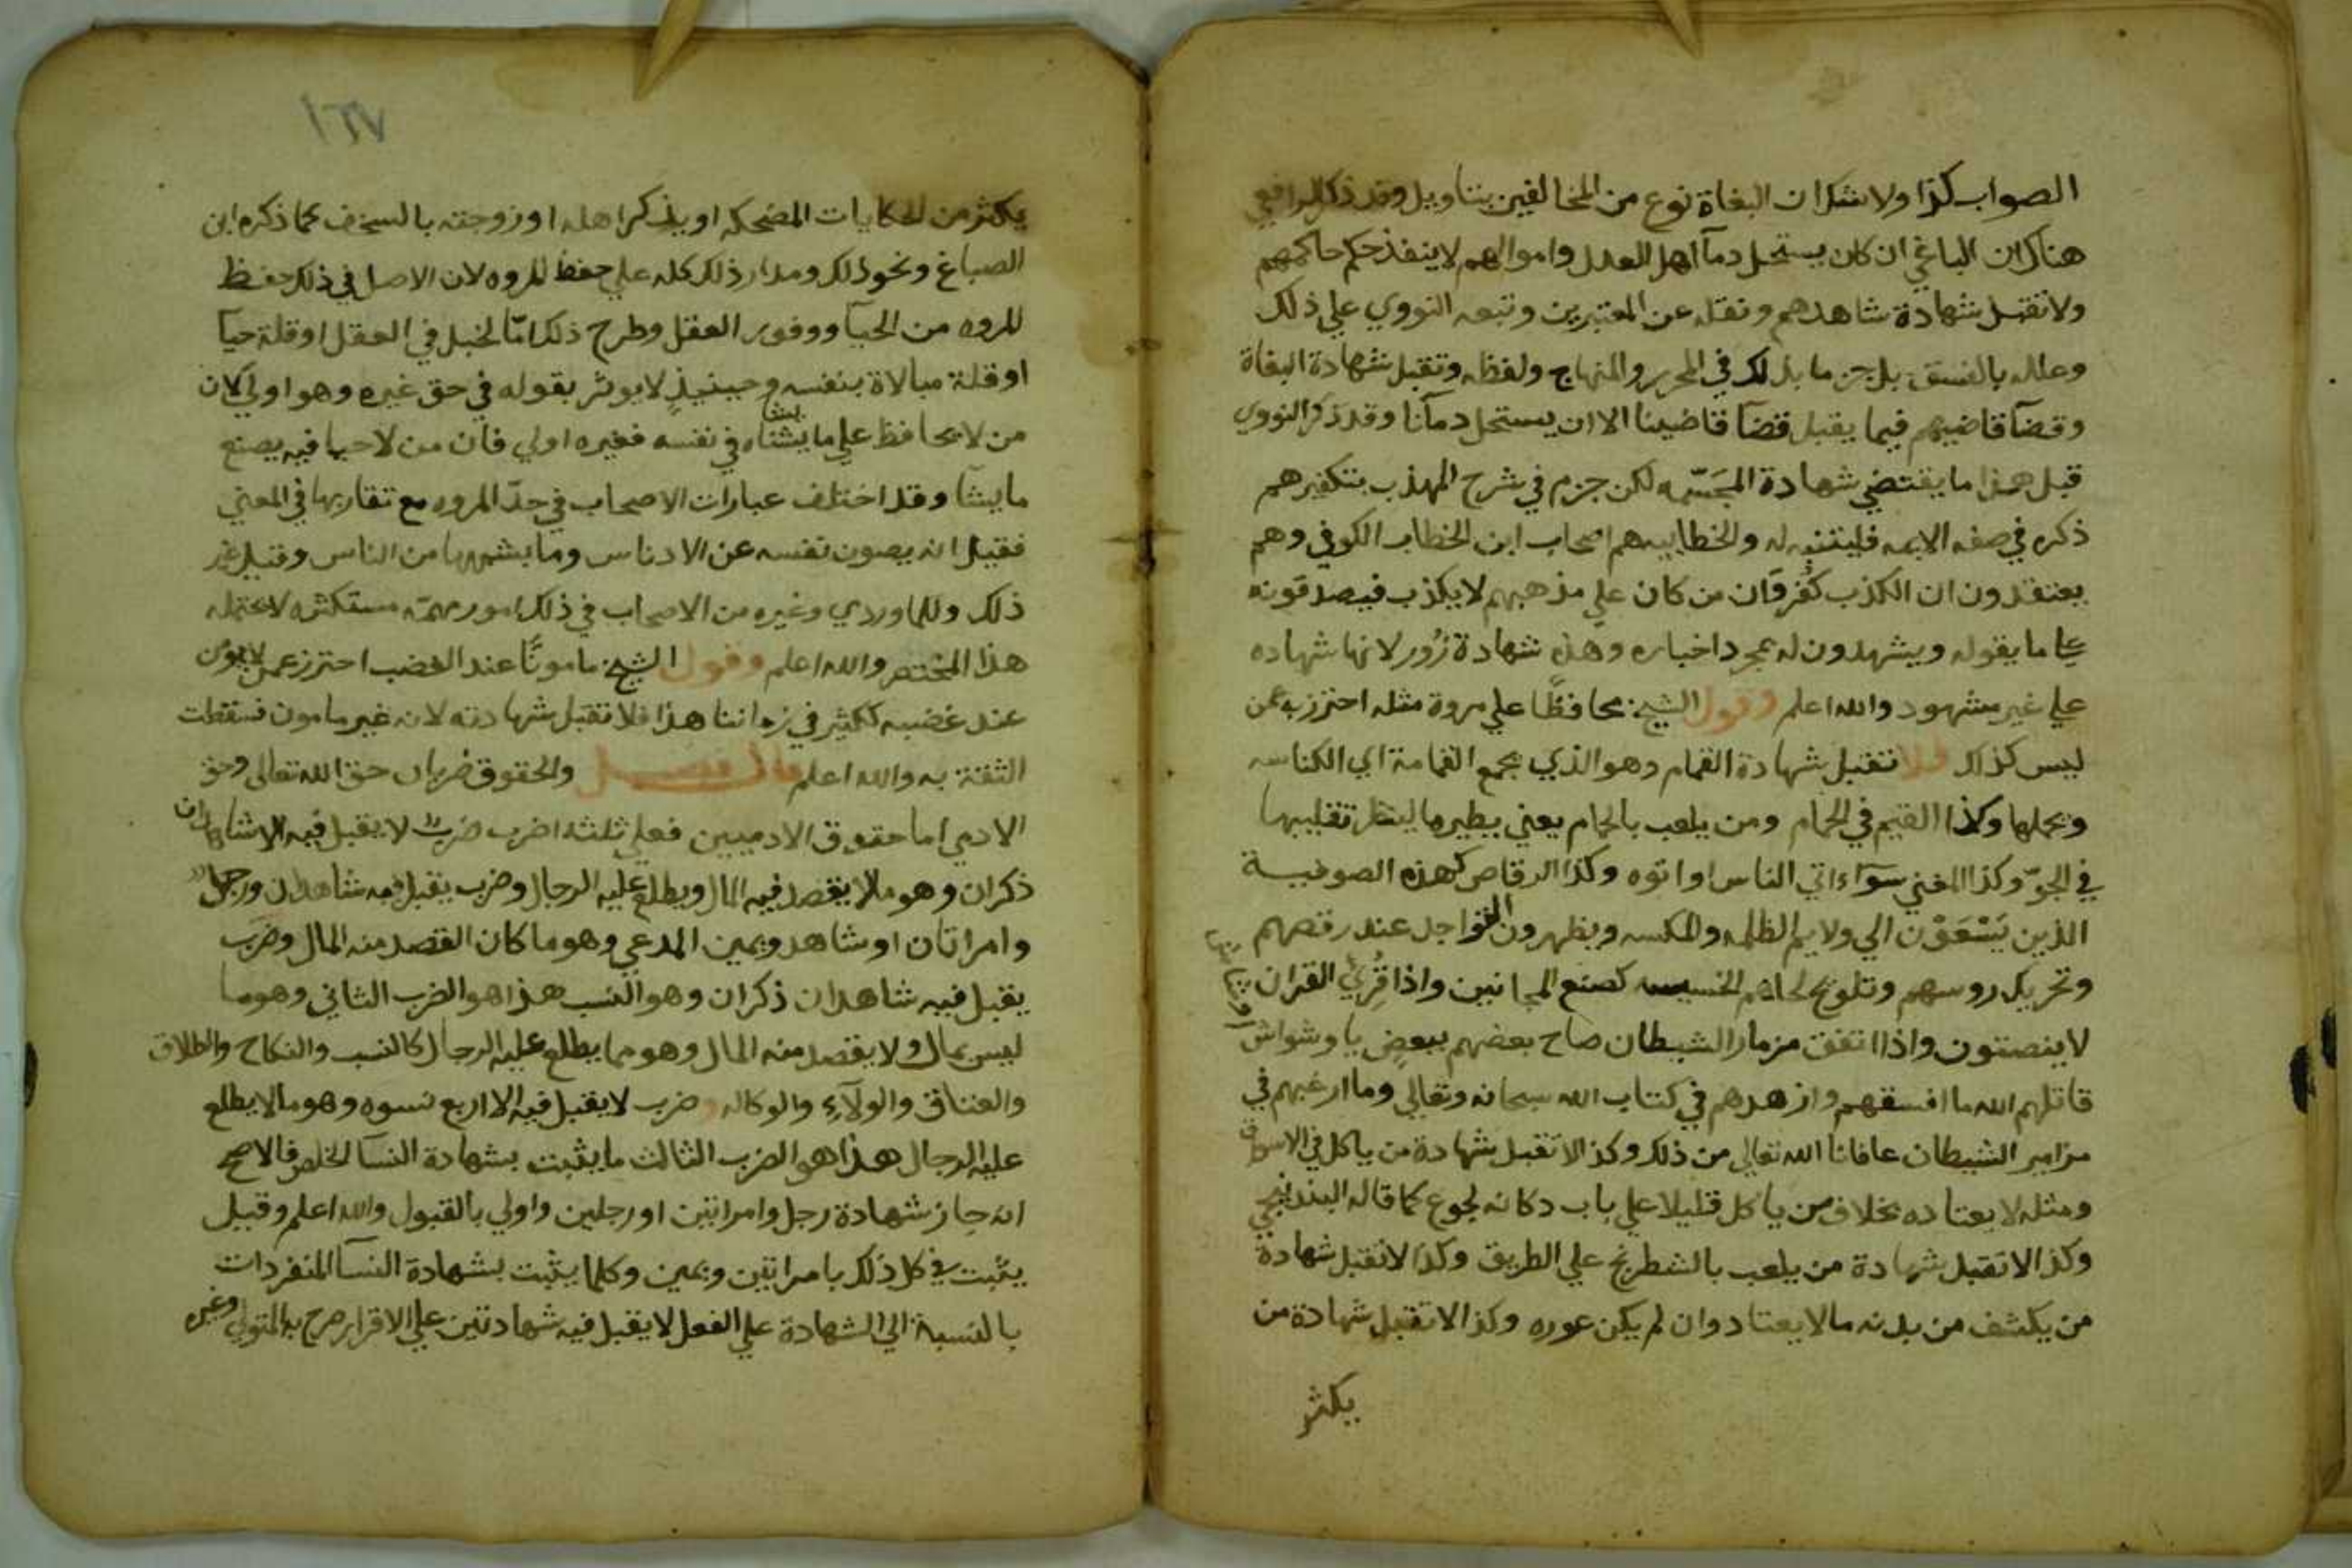 الصواب كذا ولا شك ان البغاة نوع من المخالفين بتاويل وقد ذكر الرافعي
هناك ان الباغي ان كان يستحل دمآ اهل العدل واموالهم لا ينفذ حكم حاكمهم
ولا تقبل شهادة شاهدهم ونقله عن المعتبرين وتبعه النووي علي ذلك
وعلله بالفسق بل جزما بذلك في المحرر والمنهاج ولفظه وتقبل شهادة البغاة
وقضآ قاضيهم فيما يقبل قضآ قاضينا الا ان يستحل دمآنا وقد ذكر النووي
قبل هذا ما يقتضي شهادة المجسّمه لكن جزم في شرح المهذب بتكفيرهم
ذكره في صفه الايمه فليتنبه له والخطابيه هم اصحاب ابن الخطاب الكوفي وهم
يعتقدون ان الكذب كفر وان من كان علي مذهبهم لا يكذب فيصدقونه
علي ما يقوله ويشهدون له بمجرد اخباره وهذه شهادة زُور لانها شهاده
علي غير مشهود والله اعلم وقول الشيخ محافظًا علي مروة مثله احترز به عمن
ليس كذلك فلا تقبل شهادة القمام وهو الذي يجمع القمامة اي الكناسه
ويحملها وكذا القيم في الحمام ومن يلعب بالحمام يعني يطيرها لينظر تقليبها
في الجوّ وكذا المغني سوآء اتي الناس او اتوه وكذا الرقاص كهذه الصوفية
الذين يَسْعَوْن الي ولايم الظلمه والمكسه ويظهرون التواجد عند رقصهم
وتحريك روسهم وتلويح لحاهم الخسيسه كصنع المجانين واذا قُرِئَ القران
لا ينصتون واذا اتفق مزمار الشيطان صاح بعضهم ببعض يا وشواش
قاتلهم الله ما افسقهم وازهدهم في كتاب الله سبحانه وتعالي وما ارغبهم في
مزامير الشيطان عافانا الله تعالي من ذلك وكذا لا تقبل شهادة من ياكل في الاسواق
ومثله لا يعتاده بخلاف من ياكل قليلا علي باب دكانه لجوع كما قاله البندنيجي
وكذا لا تقبل شهادة من يلعب بالشطرنج علي الطريق وكذا لا تقبل شهادة
من يكشف من بدنه ما لا يعتاد وان لم يكن عوره وكذا لا تقبل شهادة من
يكثر
١٦٧
يكثر من الحكايات المضحكه او يذكر اهله او زوجته بالسخف كما ذكره ابن
الصباغ ونحو ذلك ومدار ذلك كله علي حفظ المروه لان الاصل في ذلك حفظ
المروه من الحيآ ووفور العقل وطرح ذلك امّا لخبل في العقل او قلة حيآ
او قلة مبالاة بنفسه وحينيذٍ لا يوثر بقوله في حق غيره وهو اولي لان
من لا يحافظ علي ما يشناه في نفسه فغيره اولي فان من لا حيا فيه يصنع
ما يشآ وقد اختلف عبارات الاصحاب في حدّ المروه مع تقاربها في المعني
فقيل انه يصون نفسه عن الادناس وما يشمهرها من الناس وقيل غير
ذلك وللماوردي وغيره من الاصحاب في ذلك امور مهمّه مستكثره لا يحتمله
هذا المختصر والله اعلم وقول الشيخ مامونًا عند الغضب احترز عمن لا يومن
عند غضبه ككثير في زماننا هذا فلا تقبل شهادته لانه غير مامون فسقطت
الثقة به والله اعلم قال فصل والحقوق ضربان حق الله تعالي وحق
الادمي اما حقوق الادميين فعلي ثلثه اضرب ضرب لا يقبل فيه الا شاهدان
ذكران وهو ما لا يقصد فيه المال ويطلع عليه الرجال وضرب يقبل فيه شاهدان ورجل
وامراتان او شاهد ويمين المدعي وهو ما كان القصد منه المال وضرب
يقبل فيه شاهدان ذكران وهو النسب هذا هو الضرب الثاني وهو ما
ليس بمال ولا يقصد منه المال وهو مما يطلع عليه الرجال كالنسب والنكاح والطلاق
والعتاق والولآء والوكاله وضرب لا يقبل فيه الا اربع نسوه وهو ما لا يطلع
عليه الرجال هذا هو الضرب الثالث ما يثبت بشهادة النسآ الخلص فالاصح
انه جاز شهادة رجل وامراتين او رجلين واولي بالقبول والله اعلم وقيل
يثبت في كل ذلك بامراتين ويمين وكلما يثبت بشهادة النسآ المنفردات
بالنسبة الي الشهادة علي الفعل لا يقبل فيه شهادتين علي الاقرار صرح به المتولي وغيره